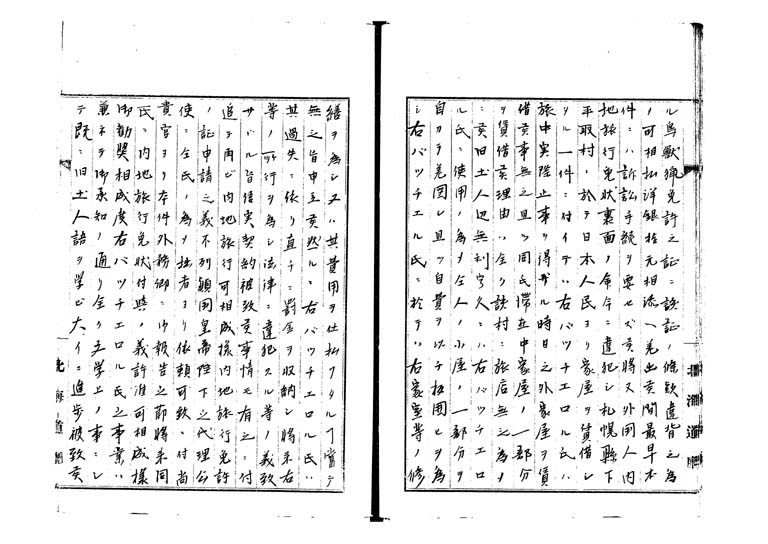 ル鳥獣猟免許之証ニ該証ノ條欵違背之為
ノ可相払洋銀拾元相添ヘ差出候間最早本
件ニハ訴訟手続ヲ要セズ候将又外国人内
地旅行免状裏面ノ命令ニ違犯シ札幌縣下
平取村ニ於テ日本人民ヨリ家屋ヲ賃借シ
タル一件ニ付イテハ右バツチエロル氏ハ
旅中実際止事ヲ得ザル時日之外家屋ヲ賃
借候事無之且ツ同氏滞在中家屋ノ一部分
ヲ賃借候理由ハ全ク該村ニ旅店無之為メ
ニ候旧土人
ル氏ニ使用ノ為メ全人ノ小屋ノ一部分ヲ
自カラ差図シ且ツ自費ヲ以テ板囲ヒヲ為
シ右バツチエル氏ニ於テハ右家屋等ノ修
繕ヲ為シ又ハ其費用ヲ仕払フタルヿ曽テ
無之旨申立候然ルニ右バツチエロル氏ハ
其過失ニ依リ直チニ罰金ヲ収納シ将来右
等ノ所行ヲ為シ法律ニ違犯スル等ノ義致
サヾル皆信実契約被致候事情モ有之ニ付
追テ再ビ内地旅行可相成様内地旅行免許
ノ証申請之義不列顛国皇帝陛下之代理公
使ニ全氏ノ為メ拙者ヨリ依頼可致ニ付尚
貴官ヨリ本件外務卿ニ御報告之節将来同
氏ニ内地旅行免状付與ノ義許准可相成様
御勧奨相成度右バツチエロル氏之事業ハ
兼子テ御承知ノ通リ全ク文学上ノ事ニシ
テ既ニ旧土人語ヲ学ビ大イニ進歩被致候